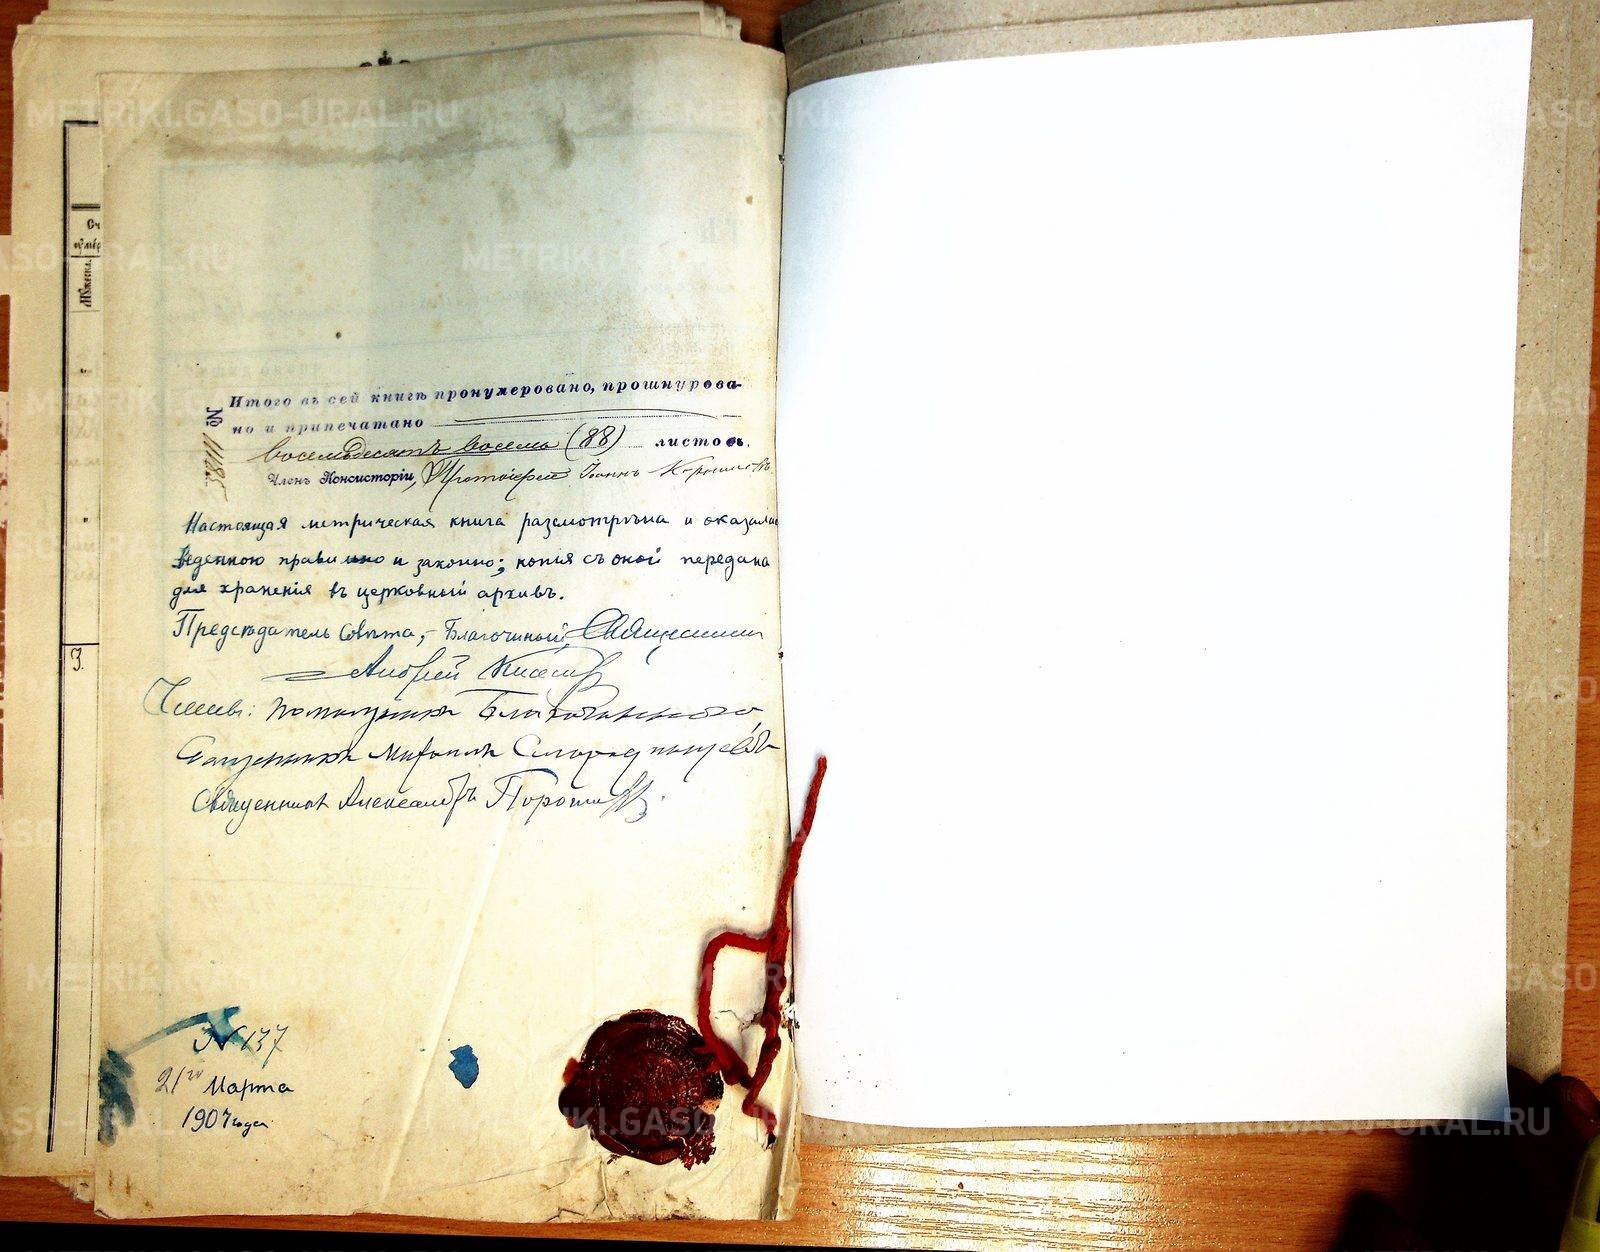 METRIKI.GASO-URAL.RU
Итого въ сей книгѣ пронумеровано, прошнурова-
но и припечатано
восемьдесятъ восемь (88) листовъ.
Членъ Консисторіи, Протоіерей Іоаннъ
№ 11185
Настоящая метрическая книга разсмотрѣна и оказалась
веденною правильно и законно; копія съ оной передана
для храненія въ церковный архивъ.
Предсѣдатель Совѣта, – Благочинный, Священникъ
Андрей
Члены: Помощникъ Благочиннаго
Священникъ
Священникъ Александръ
№ 137
21го Марта
1907 года
3.